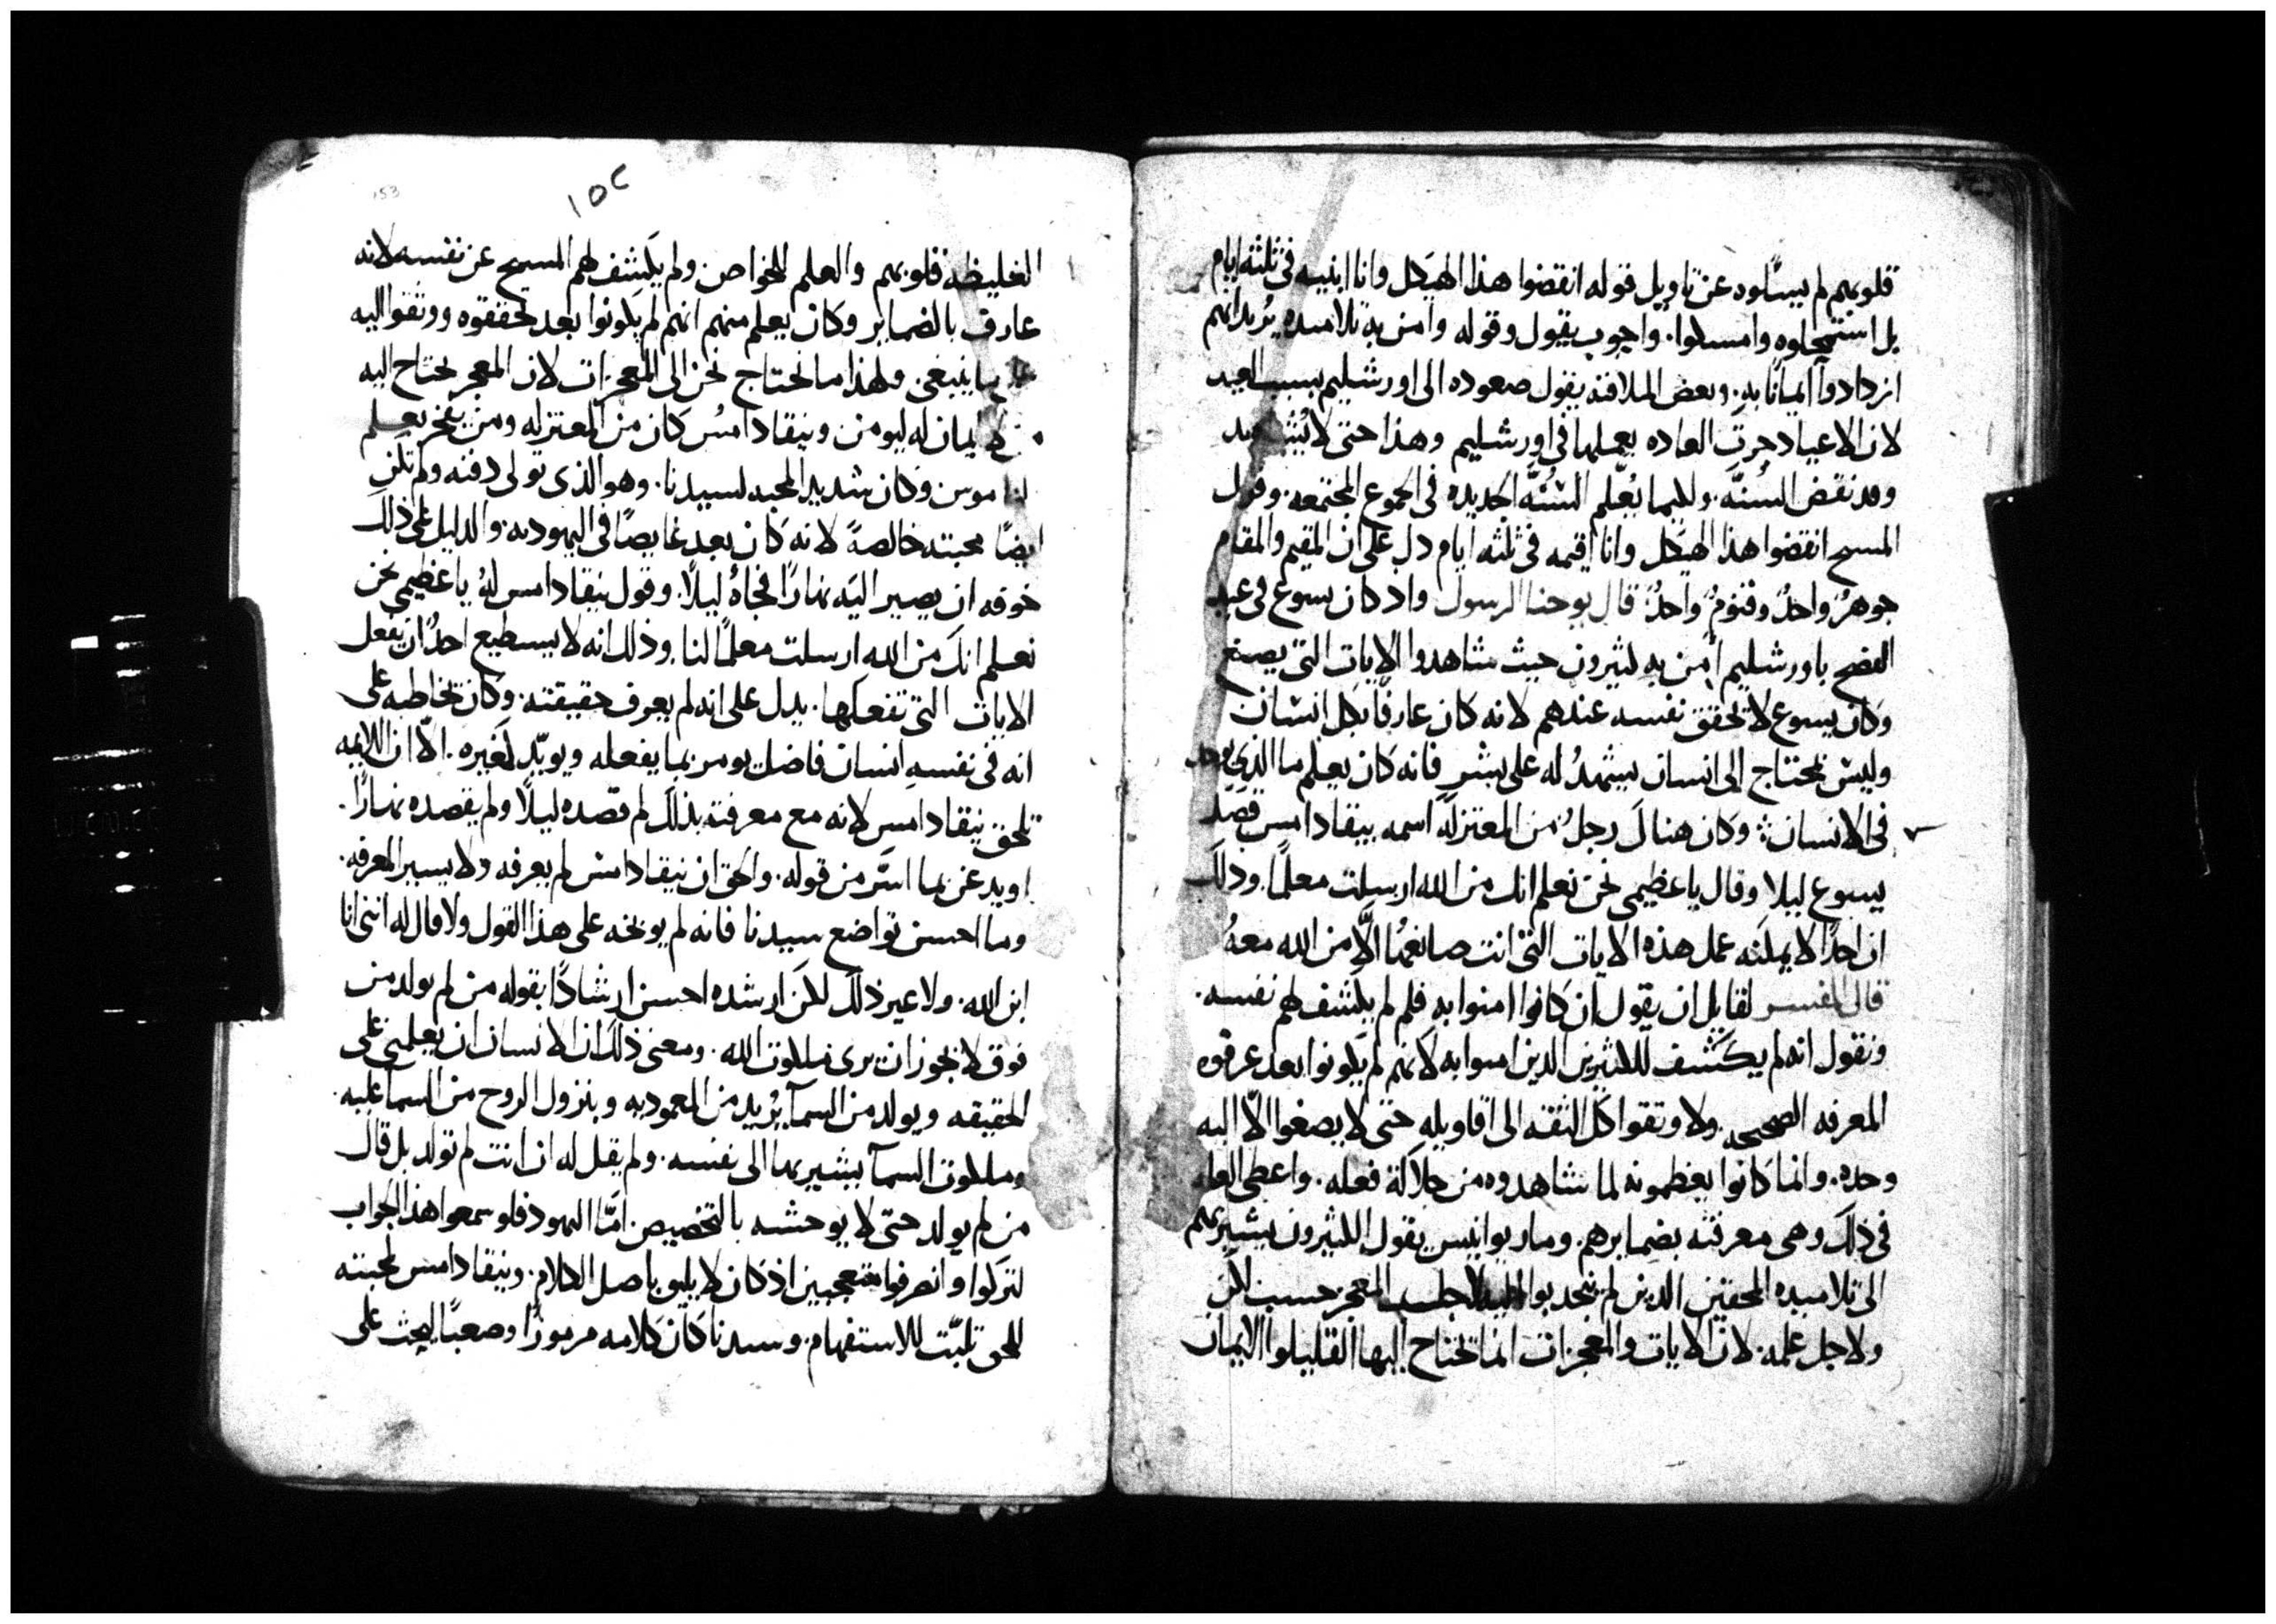 قلوبهم لم يسألوه عن تاويل قوله انقضوا هذا الهيكل وانا ابنيه في ثلثه ايام
بل استجهلوه وامسكوا. واجوب يقول وقوله وامن به تلاميده يريد انهم
ازدادوا ايمانًا به. وبعض الملافنه يقول صعوده الى اورشليم بسبب العيد
لان الاعياد جرت العاده بعملها في اورشليم وهذا حتى لا
وقد نقض السُنّه. وليما يُعلّم السُنّه الجديده في الجموع المجتمعه. وقول
المسيح انقضوا هذا الهيكل وانا اقيمه في ثلثه ايام دل على ان المقيم والمقام
جوهرٌ واحدٌ وقنومٌ واحدٌ: قال يوحنا الرسول واد كان يسوع في عيد
الفصح باورشليم امن به كثيرون حيث شاهدوا الايات التي يصنع
وكان يسوع لا يحقق نفسه عندهم لانه كان عارفًا بكل انسان
وليس يحتاج الى انسان يشهدُ له على بشرٍ فانه كان يعلم ما الذي
في الانسان: وكان هناك رجلٌ من المعتزله اسمه نيقادامس قصد
يسوع ليلا وقال ياعظيمى نحن نعلم انك من الله ارسلت معلمًا. وذلك
ان احدًا لا يمكنه عمل هذه الايات التي انت صانعها الّا من الله معهُ
قال المفسر لقايل ان يقول ان كانوا امنوا به فلم لم يكشف لهم نفسه.
ونقول انه لم يكشف للكثيرين الذين امنوا به لانهم لم يكونوا بعد عرفوه
المعرفه الصحيحه. ولا وثقوا كل الثقه الى اقاويله حتى لا يصغوا الّا اليه
وحده. وانما كانوا يعظمونه لما شاهدوه من جلالة فعله. واعطى العله
في ذلك وهى معرفته بضمايرهم. وماريوانيس يقول الكثيرون يشير بهم
الى تلاميده المحقين الذين لم ينجدبوا اليه لاجل المعجز حسب لكن
ولاجل علمه. لان الايات والمعجزات انما تحتاج اليها القليلوا الايمان
١٥٢
153
الغليظه قلوبهم والعلم للخواص ولم يكشف لهم المسيح عن نفسه لانه
عارف بالضماير وكان يعلم منهم انهم لم يكونوا بعد تحققوه ووثقوا اليه
ينبغى ولهذا ما نحتاج نحن الى المعجزات لان المعجز يحتاج اليه
ايمان له ليومن ونيقادامُس كان من المعتزله ومن يعلم
موس وكان شديد المحبه لسيدنا. وهو الذي تولى دفنه ولم تكن
ايضًا محبته خالصةً لانه كان بعد غايصًا في اليهوديه. والدليل على ذلك
خوفه ان يصير اليه نهارًا فجاهُ ليلًا. وقول نيقادامس لهُ ياعظيمى نحن
نعلم انك من الله ارسلت معلمًا لنا. وذلك انه لا يسطيع احدٌ ان يفعل
الايات التي تفعلها. يدل على انه لم يعرف حقيقته. وكان تخاطبه على
انه في نفسهِ انسان فاضل يومر بما يفعله ويويّد لغيره. الّا ان اللايمه
تلحق نيقادامس لانه مع معرفته بذلك لم قصده ليلًا ولم يقصده نهارًا.
ويدعن بما استر من قوله. والحق ان نيقادامس لم يعرفه ولا يسير المعرفه.
وما احسن تواضع سيدنا فانه لم يوبخه على هذا القول ولا قال له اننى انا
ابن الله. ولا غير ذلك لكن ارشده احسن ارشادًا بقوله من لم يولد من
فوق لا يجوز ان يرى ملكوت الله. ومعنى ذلك ان الانسان ان يعلمنى على
الحقيقه ويولد من السمآ يُريد من المعموديه وبنزول الروح من السما عليه.
وملكوت السمآ يشير بها الى نفسه. ولم يقل له ان انت لم تولد بل قال
من لم يولد حتى لا يوحشه بالتخصيص. امّا اليهود فلو سمعوا هذا الجواب
لتركوا وانصرفوا متعجبين اذ كان لا يليق باصل الكلام. ونيقادامس لمحبته
للحق تلبّث للاستفهام. وسيدنا كان كلامه مرموزًا وصعبًا ليحث على